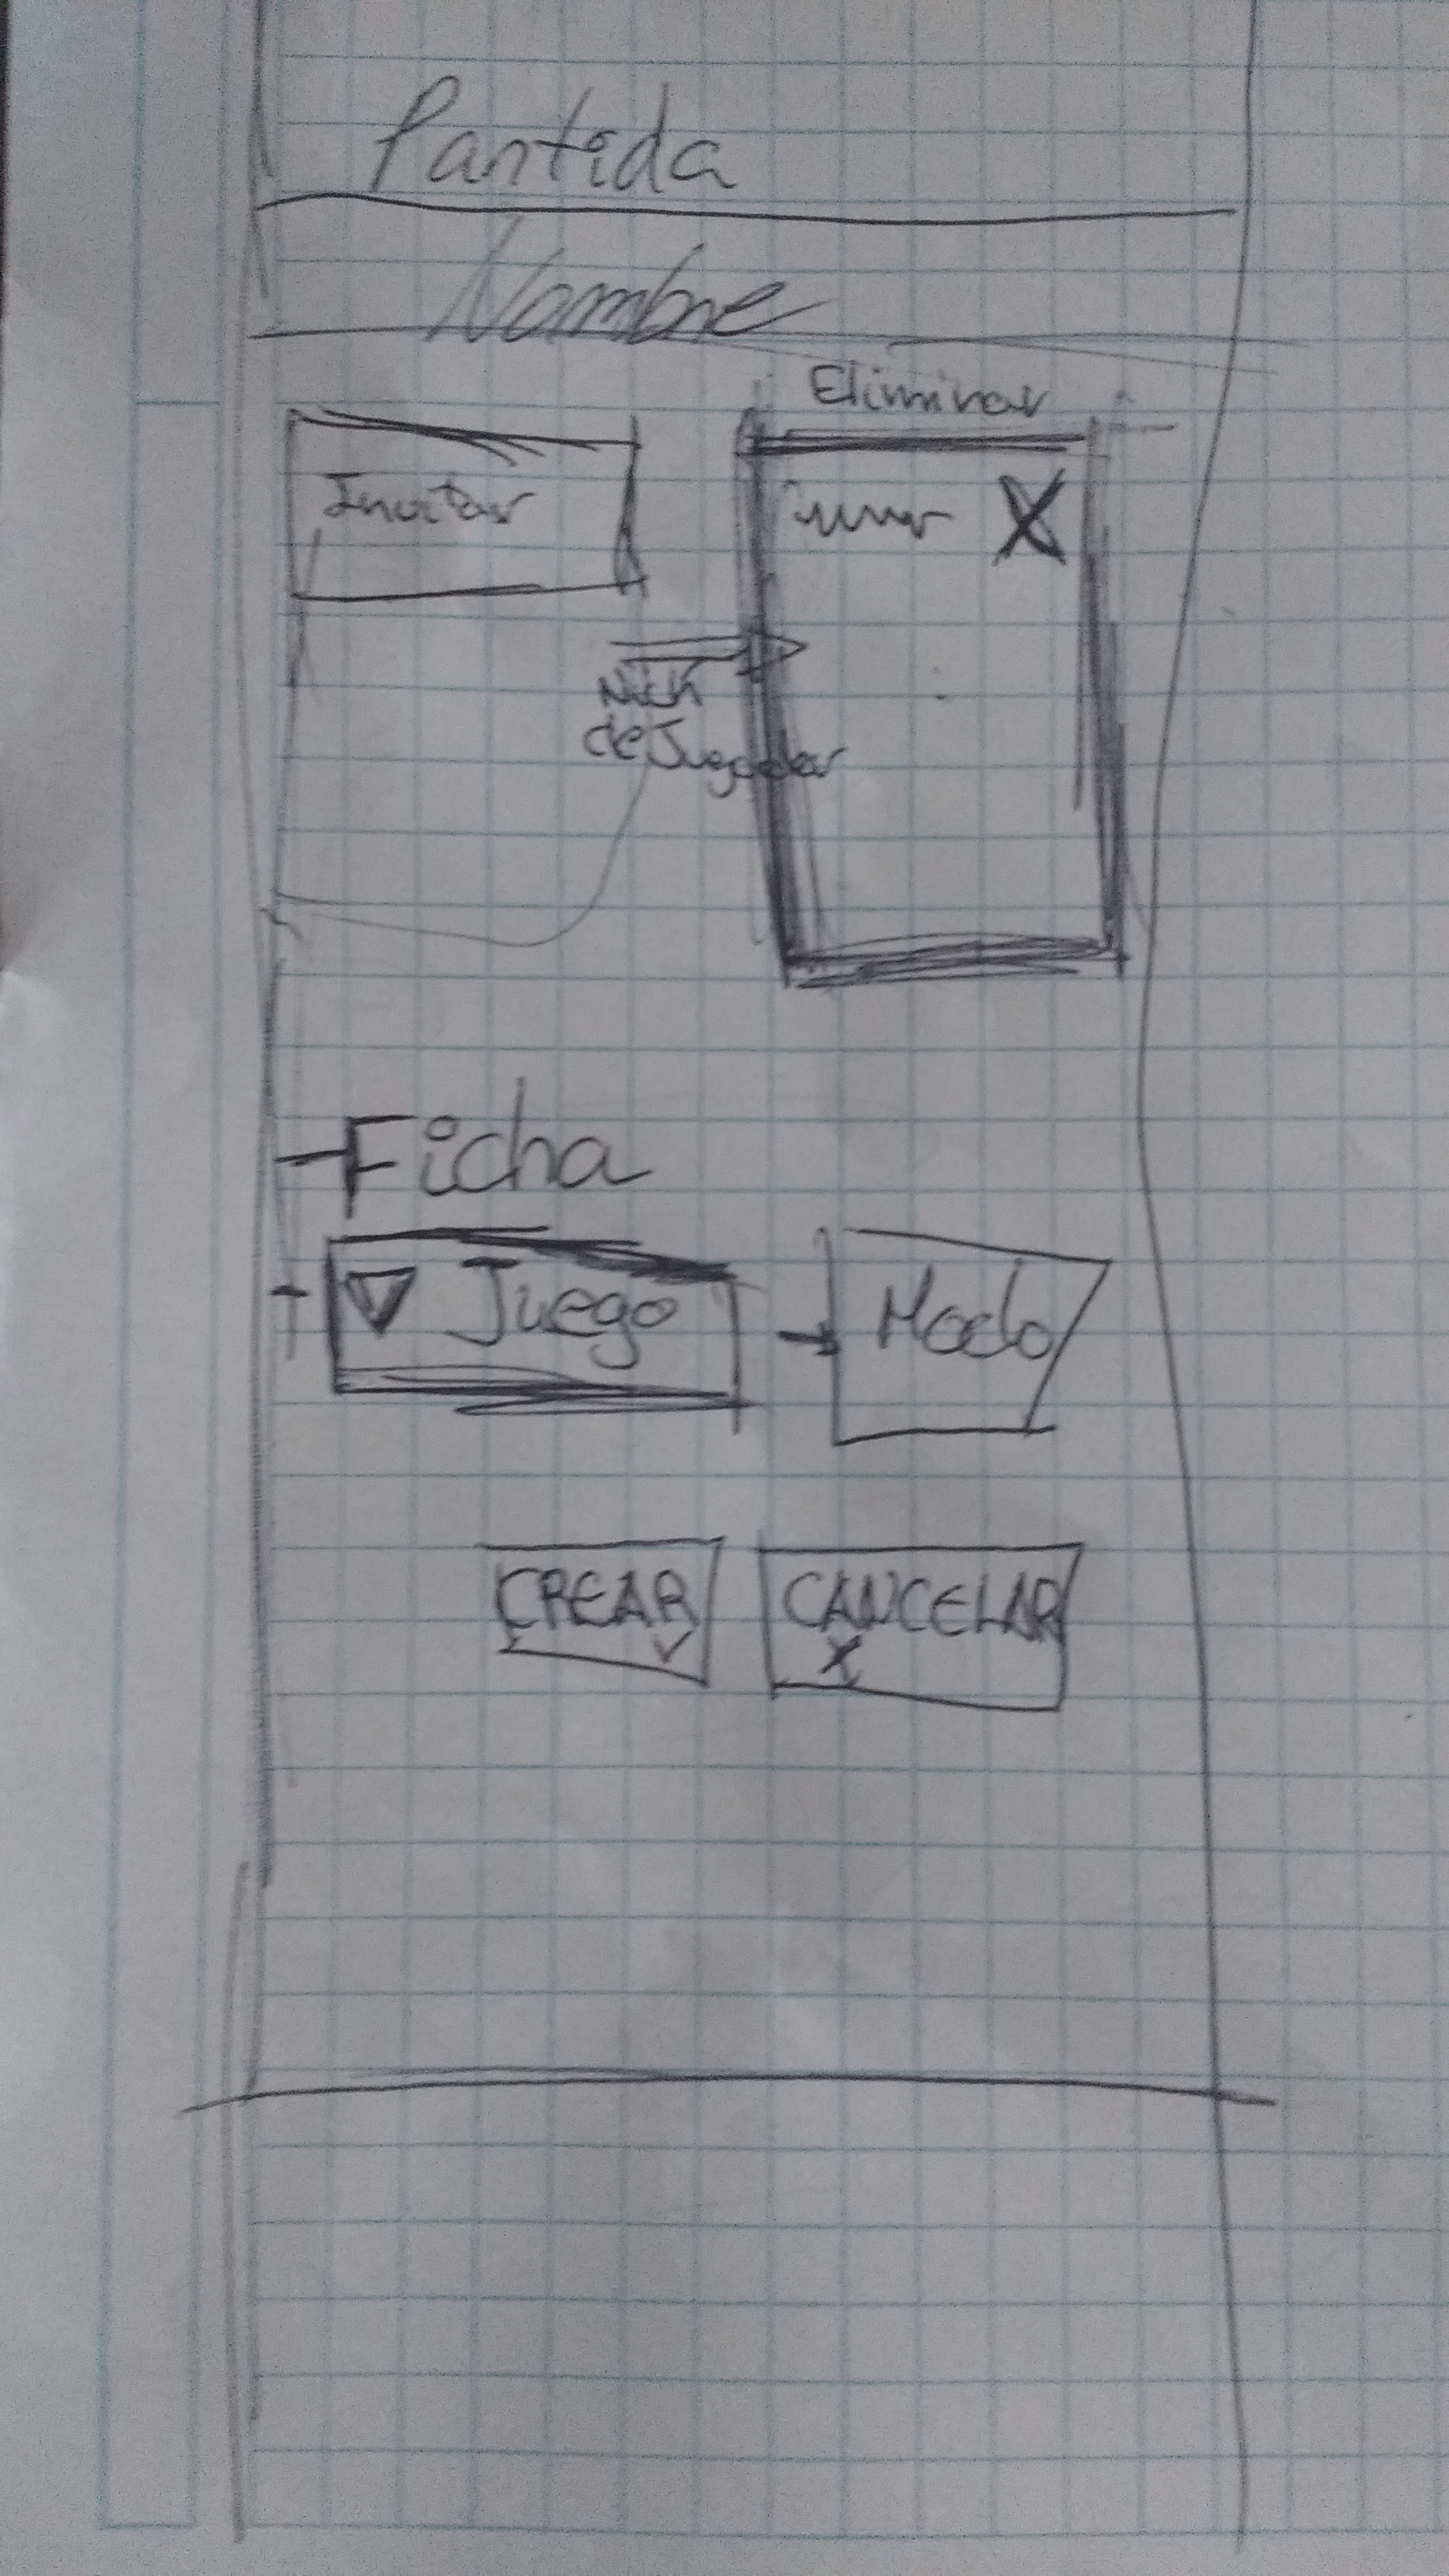 Partida
Nombre
Eliminar
Invitar
X
Nick
de Jugador
Ficha
Juego
Modo
CREAR
CANCELAR
X